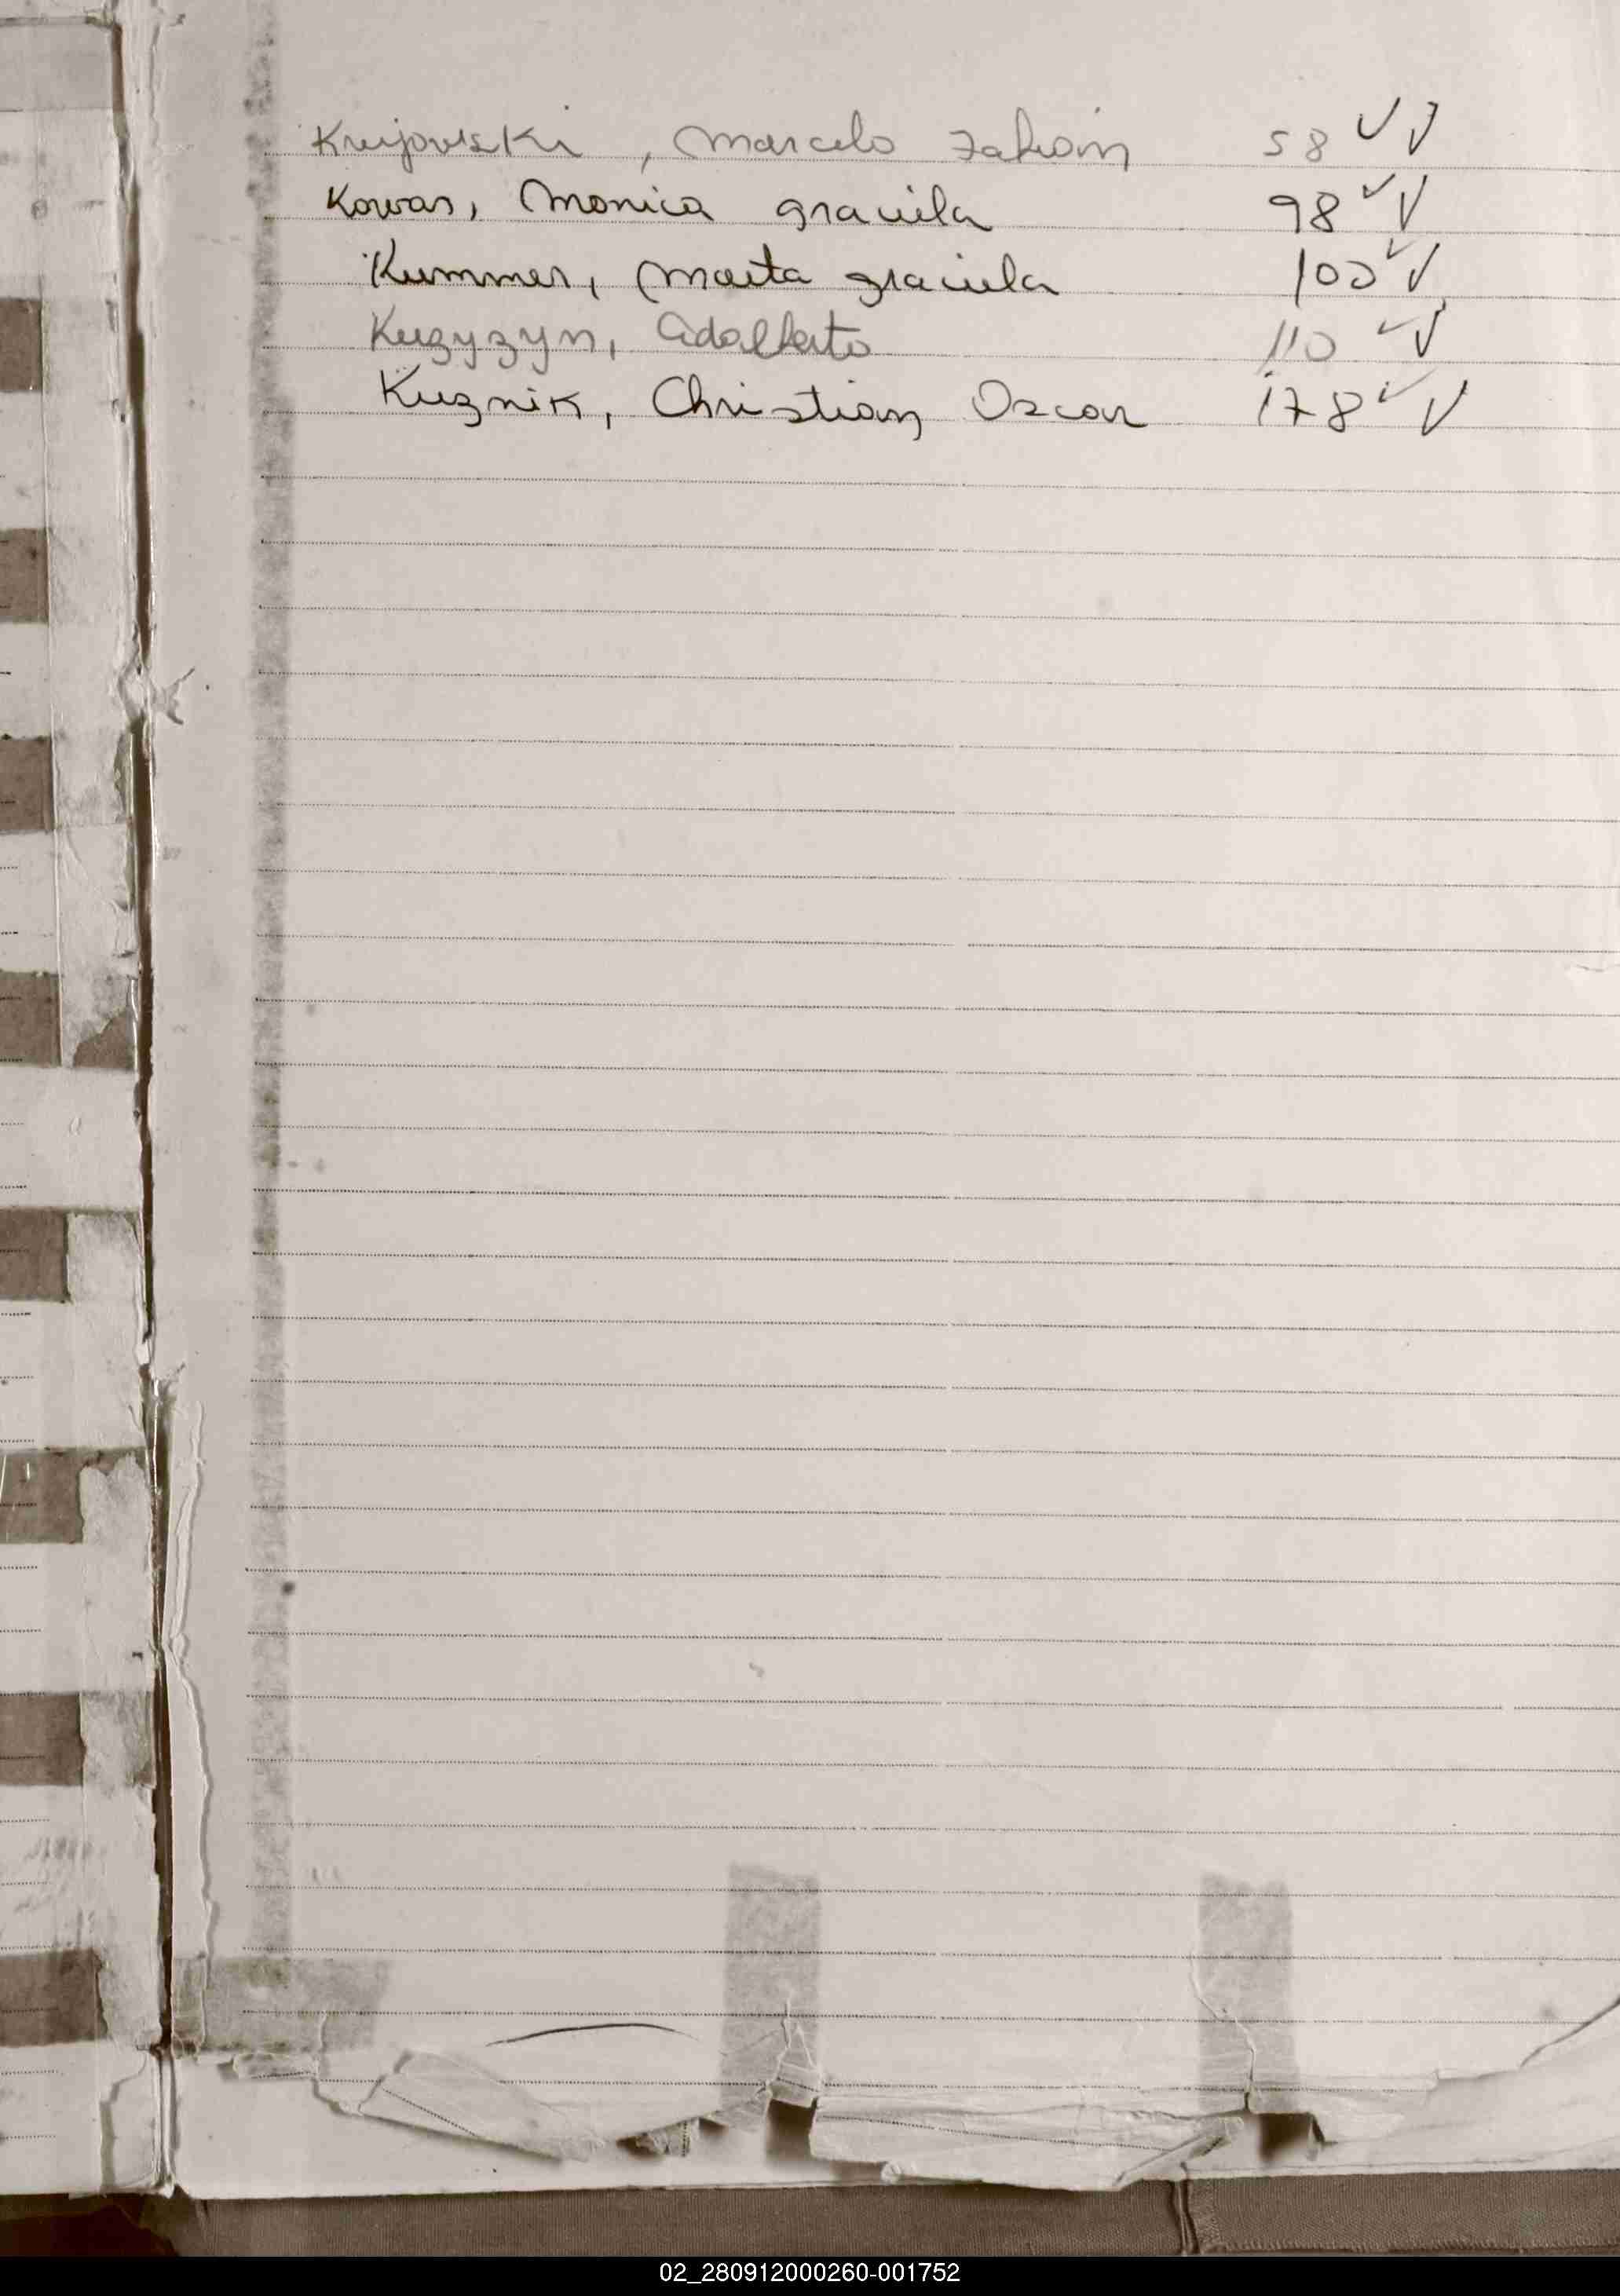 Krijovski, Marcelo Fabián 58 ✓ ✓
Kowas, Monica graciela 98 ✓ ✓
Kummer, Marta graciela 100 ✓ ✓
Kuzyzyn, Adalberto 110 ✓ ✓
Kuznik, Christian Oscar 178 ✓ ✓
02_280912000260-001752